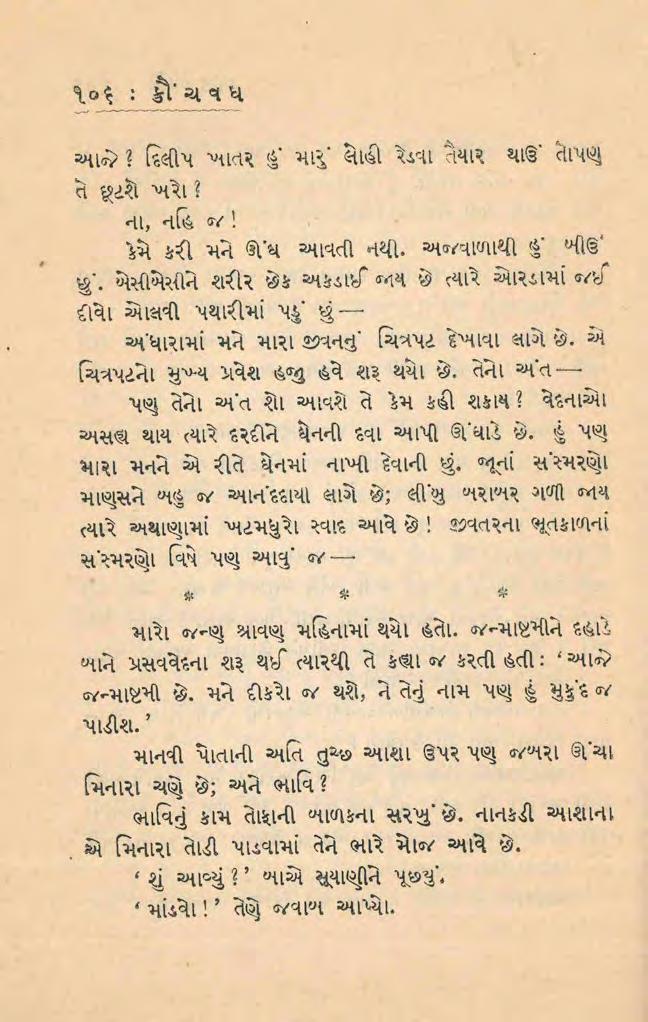 ૧૦૬ : ક્રૌંચવધ
આજે? દિલીપ ખાતર હું મારું લોહી રેડવા તૈયાર થાઉં તોપણ
તે છૂટશે ખરો?
ના, નહિ જ!
કેમે કરી મને ઊંઘ આવતી નથી. અજવાળાથી હું બીઉં
છું. બેસીબેસીને શરીર છેક અકડાઈ જાય છે ત્યારે ઓરડામાં જઈ
દીવો ઓલવી પથારીમાં પડું છું—
અંધારામાં મને મારા જીવનનું ચિત્રપટ દેખાવા લાગે છે. એ
ચિત્રપટનો મુખ્ય પ્રવેશ હજુ હવે શરૂ થયો છે. તેનો અંત—
પણ તેનો અંત શો આવશે તે કેમ કહી શકાય? વેદનાઓ
અસહ્ય થાય ત્યારે દરદીને ઘેનની દવા આપી ઊંઘાડે છે. હું પણ
મારા મનને એ રીતે ઘેનમાં નાખી દેવાની છું. જૂનાં સંસ્મરણો
માણસને બહુ જ આનંદદાયા લાગે છે; લીંબુ બરાબર ગળી જાય
ત્યારે અથાણામાં ખટમધુરો સ્વાદ આવે છે! જીવતરના ભૂતકાળનાં
સંસ્મરણો વિષે પણ આવું જ—
* * *
મારો જન્ણ શ્રાવણ મહિનામાં થયો હતો. જન્માષ્ટમીને દહાડે
બાને પ્રસવવેદના શરૂ થઈ ત્યારથી તે કહ્યા જ કરતી હતી: ‘આજે
જન્માષ્ટમી છે. મને દીકરો જ થશે, ને તેનું નામ પણ હું મુકુંદ જ
પાડીશ.’
માનવી પોતાની અતિ તુચ્છ આશા ઉપર પણ જબરા ઊંચા
મિનારા ચણે છે; અને ભાવિ?
ભાવિનું કામ તોફાની બાળકના સરખું છે. નાનકડી આશાના
એ મિનારા તોડી પાડવામાં તેને ભારે મોજ આવે છે.
‘શું આવ્યું?’ બાએ સૂયાણીને પૂછ્યું.
‘માંડવો!’ તેણે જવાબ આપ્યો.